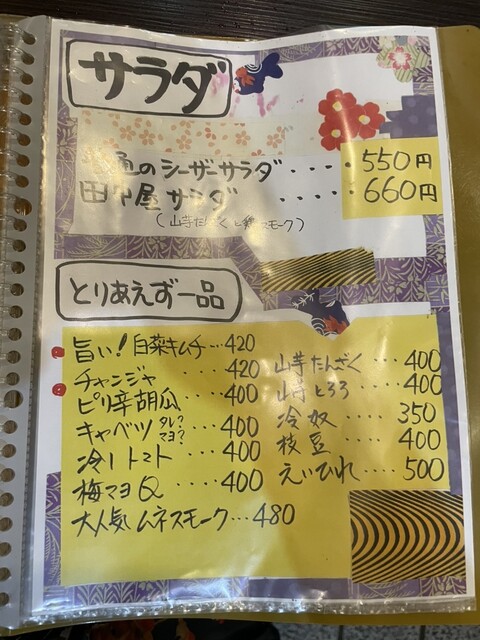 サラダ
のシーザーサラダ・・・・550円
田中屋サラダ・・・・660円
(山芋たんざくと スモーク)
とりあえず一品
旨い!白菜キムチ…420
チャンジャ ・・・・420
ピリ辛胡瓜 ・・・・400
キャベツ タレ? マヨ? ・・・・400
冷トマト ・・・・400
梅マヨQ ・・・・400
大人気ムネスモーク…480
山芋たんざく ・・・・400
山芋とろろ ・・・・400
冷奴 ・・・・350
枝豆 ・・・・400
えいひれ ・・・・500